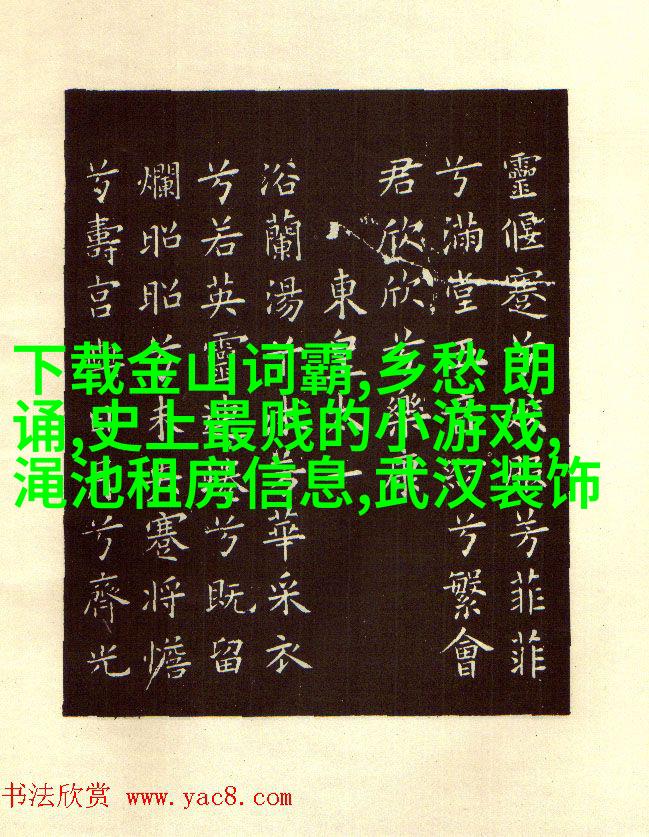 靈偃蹇兮姣服芳菲菲
兮滿堂兮繁會
君欣欣兮樂康
東皇太一
浴蘭湯兮沐芳華采衣
兮若英靈連蜷兮既留
爛昭昭兮未央蹇將憺
兮壽宮日月兮齊光
下载金山词霸,乡愁 朗
诵,史上最贱的小游戏,
渑池租房信息,武汉装饰
书法欣赏 www.yac8.com